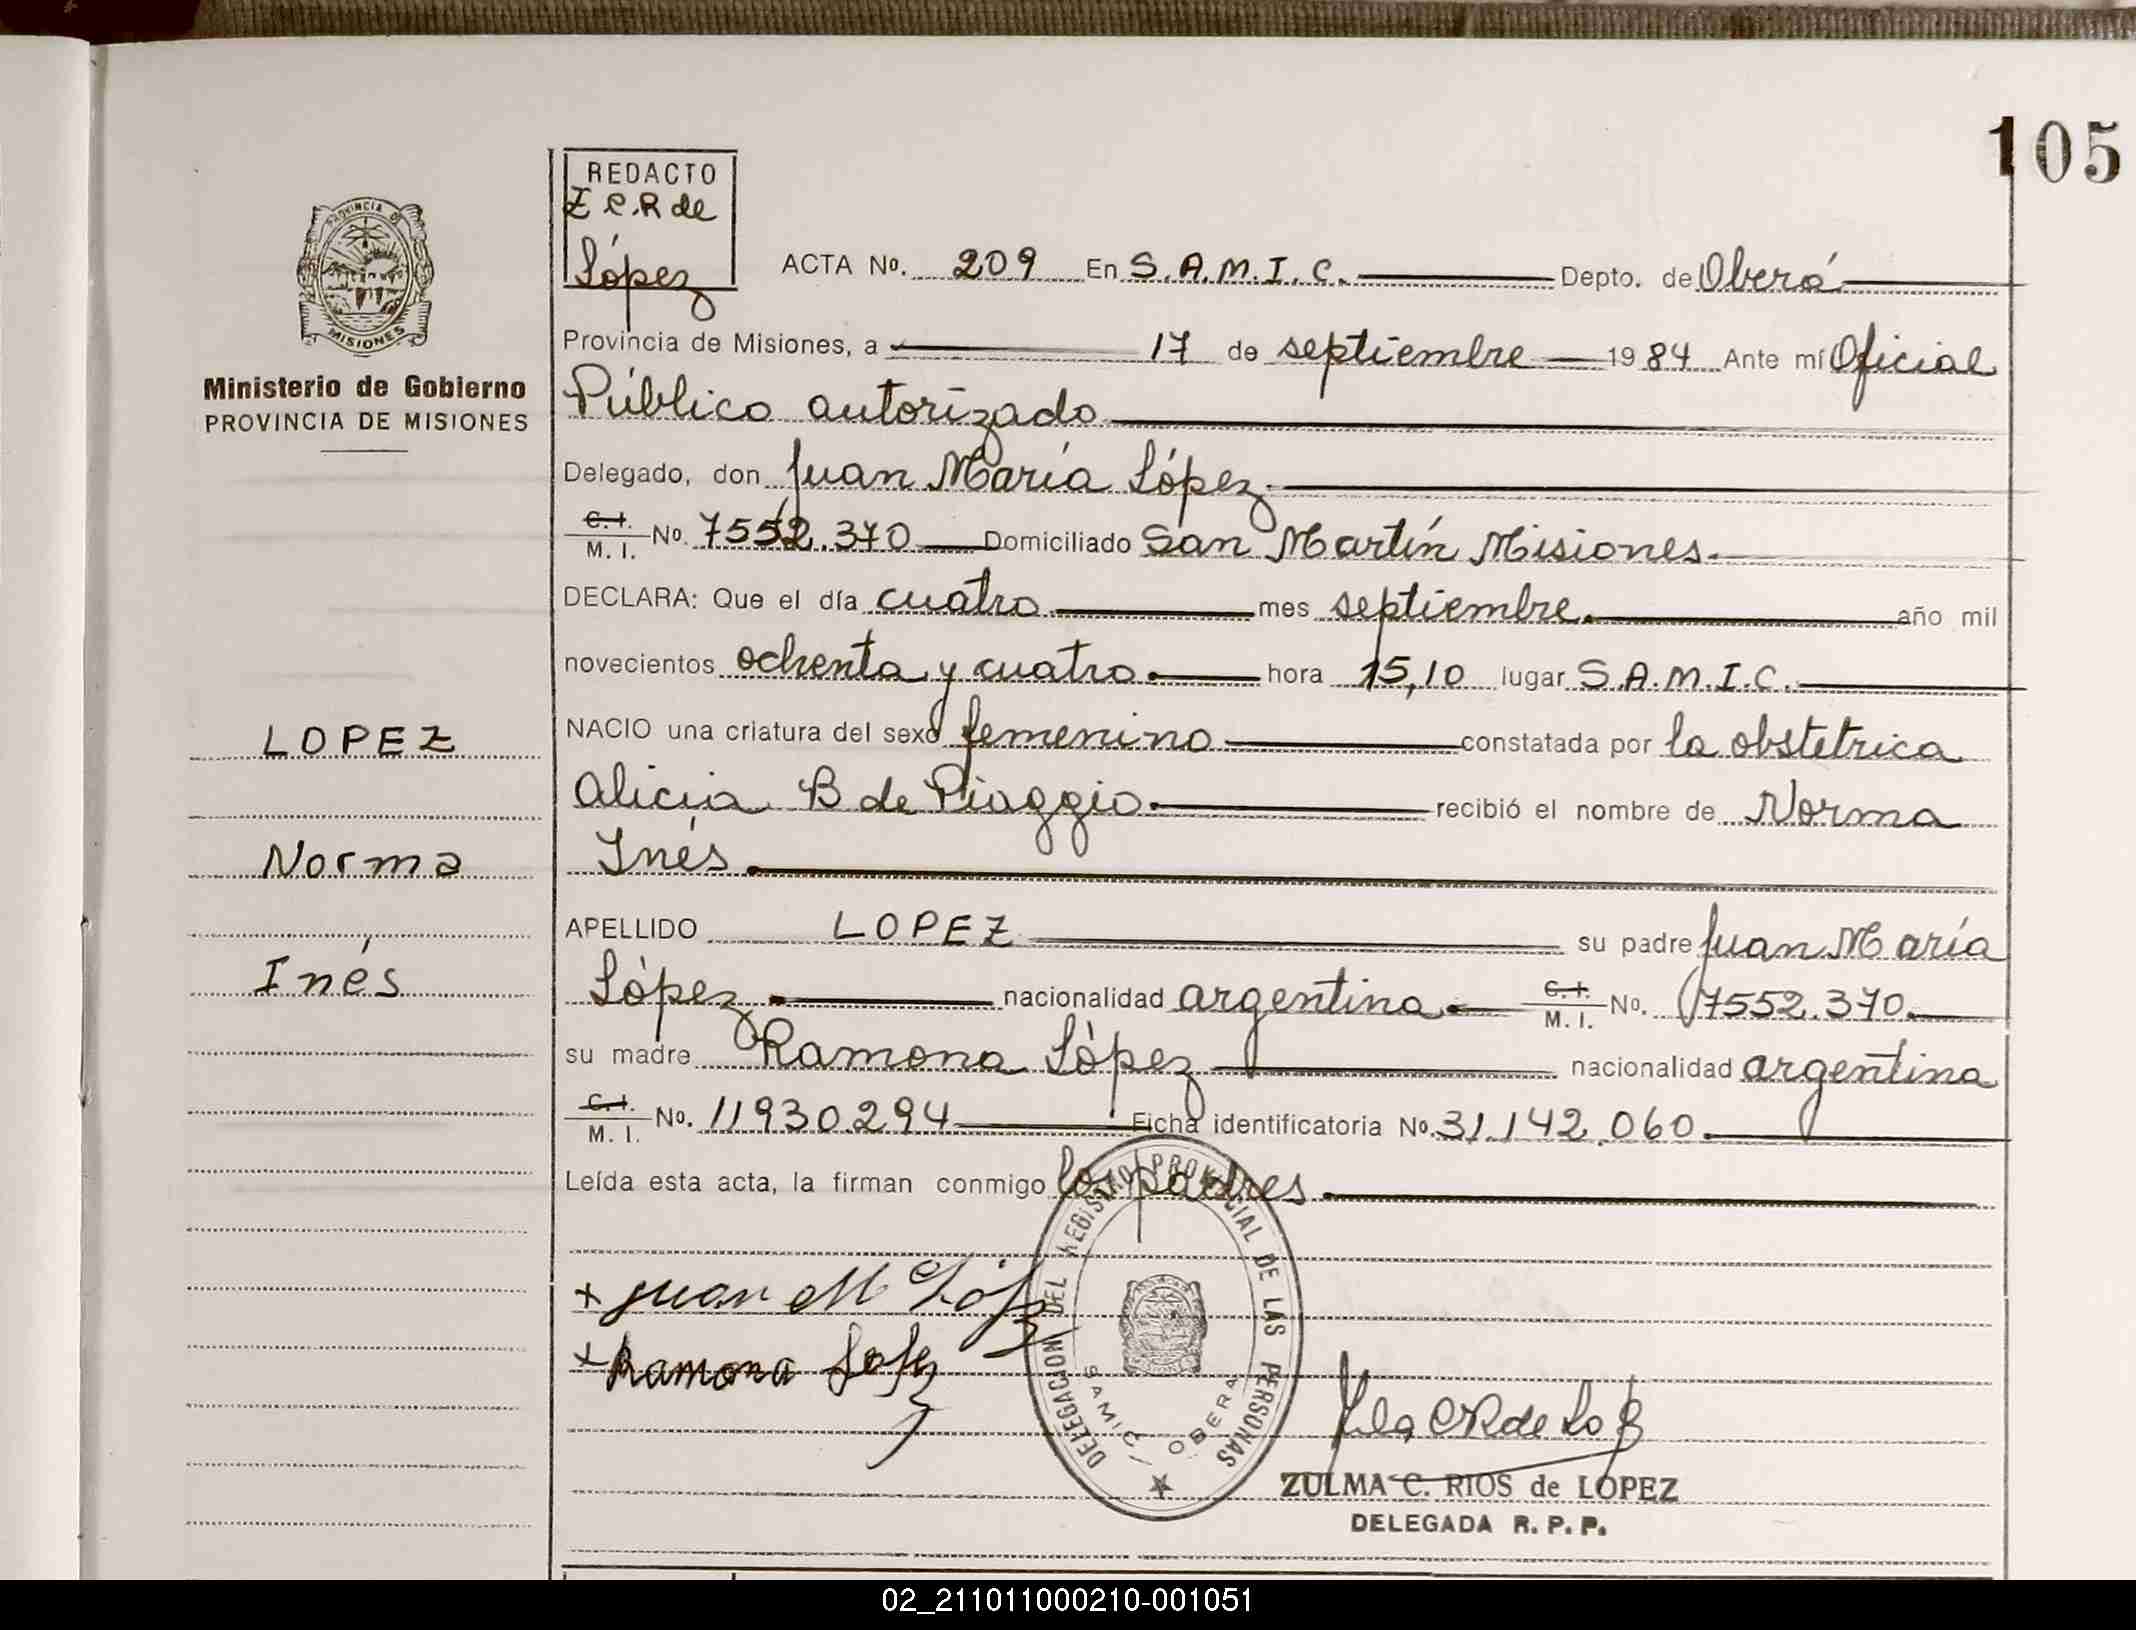 105
REDACTO
Z C.R de
López
PROVINCIA DE
MISIONES
Ministerio de Gobierno
PROVINCIA DE MISIONES
ACTA No. 209 En S.A.M.I.C. Depto. de Oberá
Provincia de Misiones, a 17 de septiembre 1984 Ante mí Oficial
Público autorizado
Delegado, don Juan María López.
C.I. M. I. No. 7552.370 Domiciliado San Martín Misiones.
DECLARA: Que el día cuatro mes septiembre. año mil
novecientos ochenta y cuatro. hora 15,10 lugar S.A.M.I.C.
LOPEZ
NACIO una criatura del sexo femenino constatada por la obstetrica
Alicia B de Piaggio. recibió el nombre de Norma
Norma
Inés.
APELLIDO LOPEZ su padre Juan María
Inés
López. nacionalidad argentina. C.I. M. I. No. 7552.370.
su madre Ramona López nacionalidad argentina
C.I. M. I. No. 11930.294 Ficha identificatoria No. 31.142.060.
Leída esta acta, la firman conmigo los padres.
DELEGACION DEL REGISTRO PROVINCIAL DE LAS PERSONAS
SAMIC OBERA
+ Juan M López
+ Ramona Lopez
ZULMA C. RIOS de LOPEZ
DELEGADA R. P. P.
02_211011000210-001051